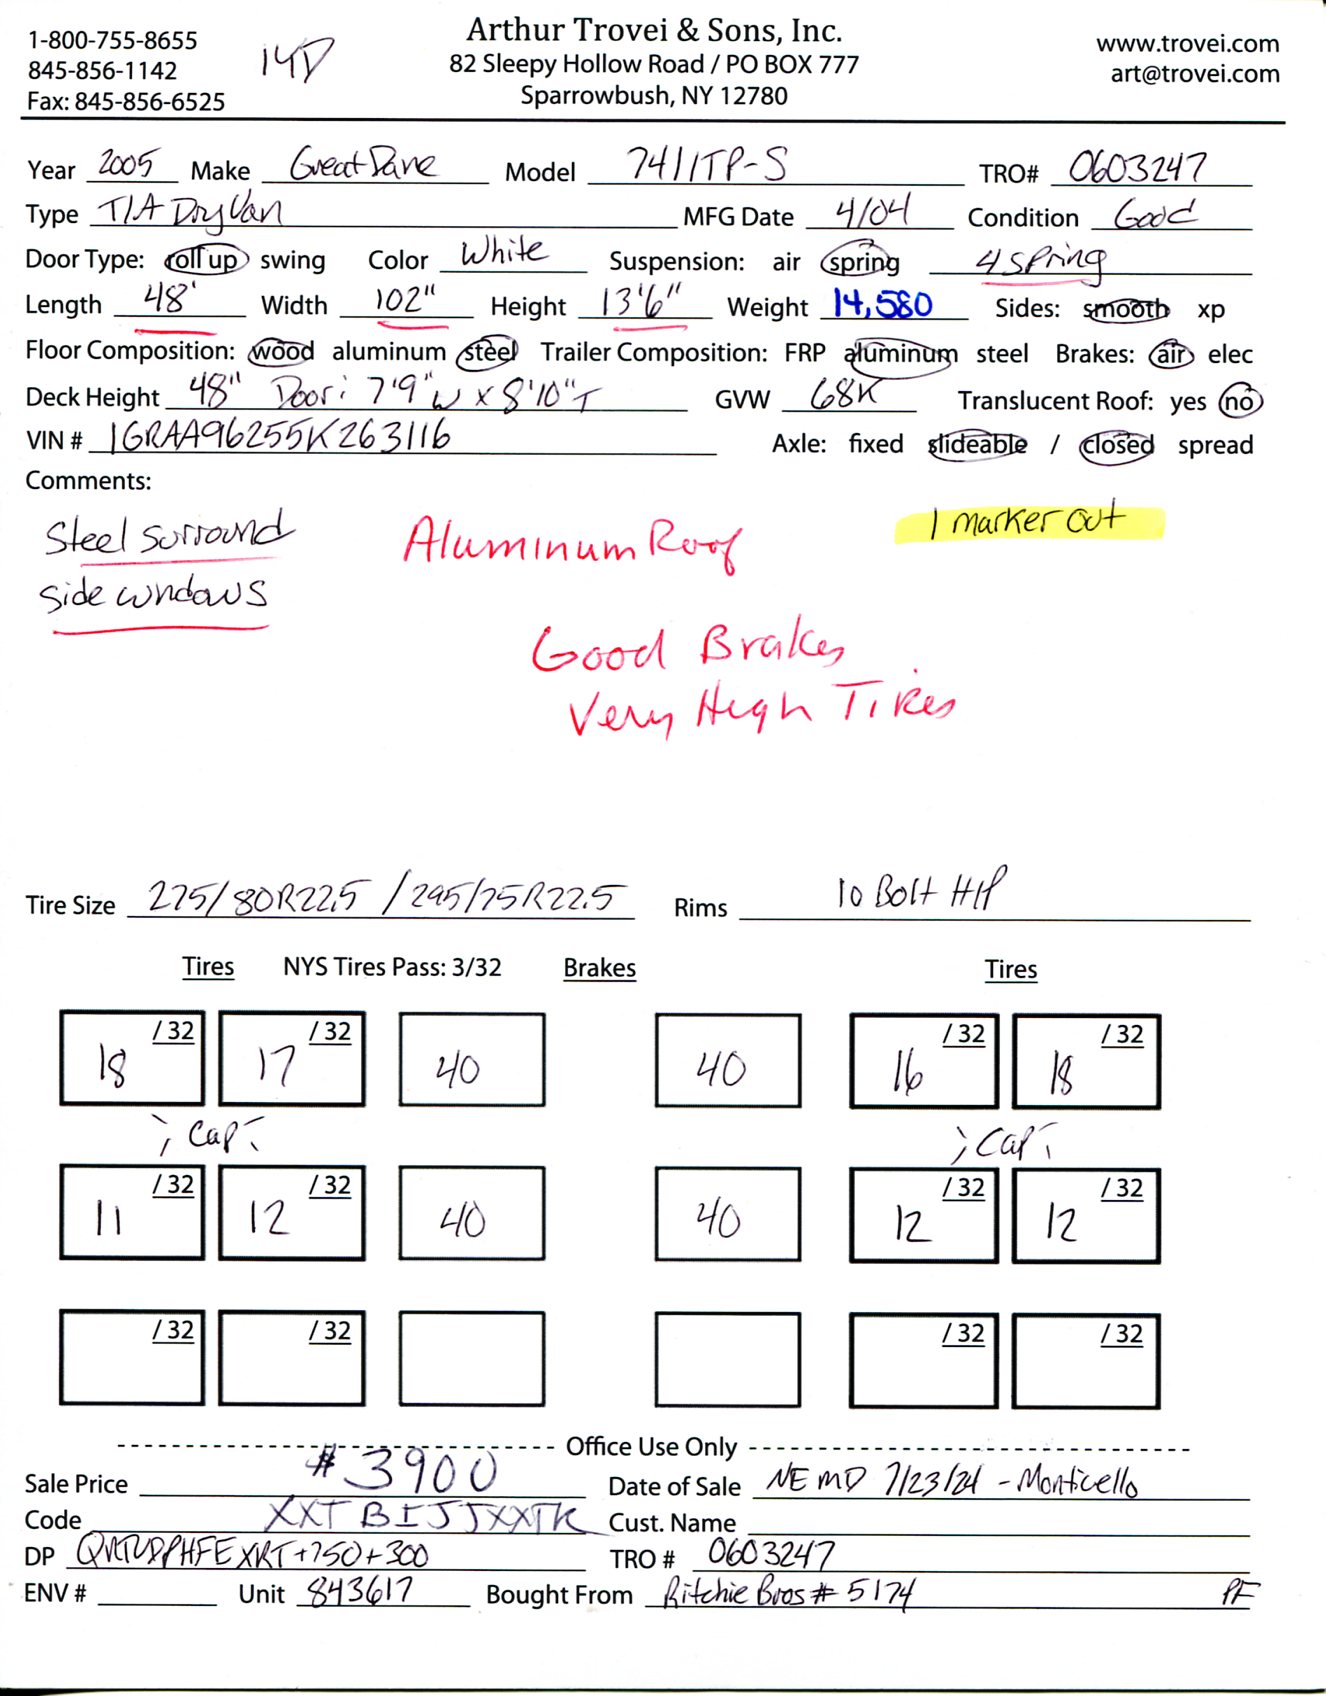 1-800-755-8655
845-856-1142
Fax: 845-856-6525
14D
Arthur Trovei & Sons, Inc.
82 Sleepy Hollow Road / PO BOX 777
Sparrowbush, NY 12780
www.trovei.com
art@trovei.com
Year 2005 Make Great Dane Model 7411TP-S TRO# 0603247
Type T/A Dry Van MFG Date 4/04 Condition Good
Door Type: roll up swing Color White Suspension: air spring 4 spring
Length 48' Width 102" Height 13'6" Weight 14,580 Sides: smooth xp
Floor Composition: wood aluminum steel Trailer Composition: FRP aluminum steel Brakes: air elec
Deck Height 48" Door: 7'9"W x 8'10"T GVW 68K Translucent Roof: yes no
VIN # 1GRAA96255K263116 Axle: fixed slideable / closed spread
Comments:
Steel surround
side windows
Aluminum Roof
1 marker out
Good Brakes
Very High Tires
Tire Size 275/80R22.5 / 295/75R22.5 Rims 10 Bolt H/P
Tires NYS Tires Pass: 3/32 Brakes Tires
18 /32 17 /32 40 40 16 /32 18 /32
Cap Cap
11 /32 12 /32 40 40 12 /32 12 /32
/32 /32 /32 /32
Office Use Only
Sale Price #3900 Date of Sale NEMD 7/23/24 - Monticello
Code XXTBIJJXXTK Cust. Name
DP +750+300 TRO # 0603247
ENV # Unit 843617 Bought From Ritchie Bros # 5174 PF